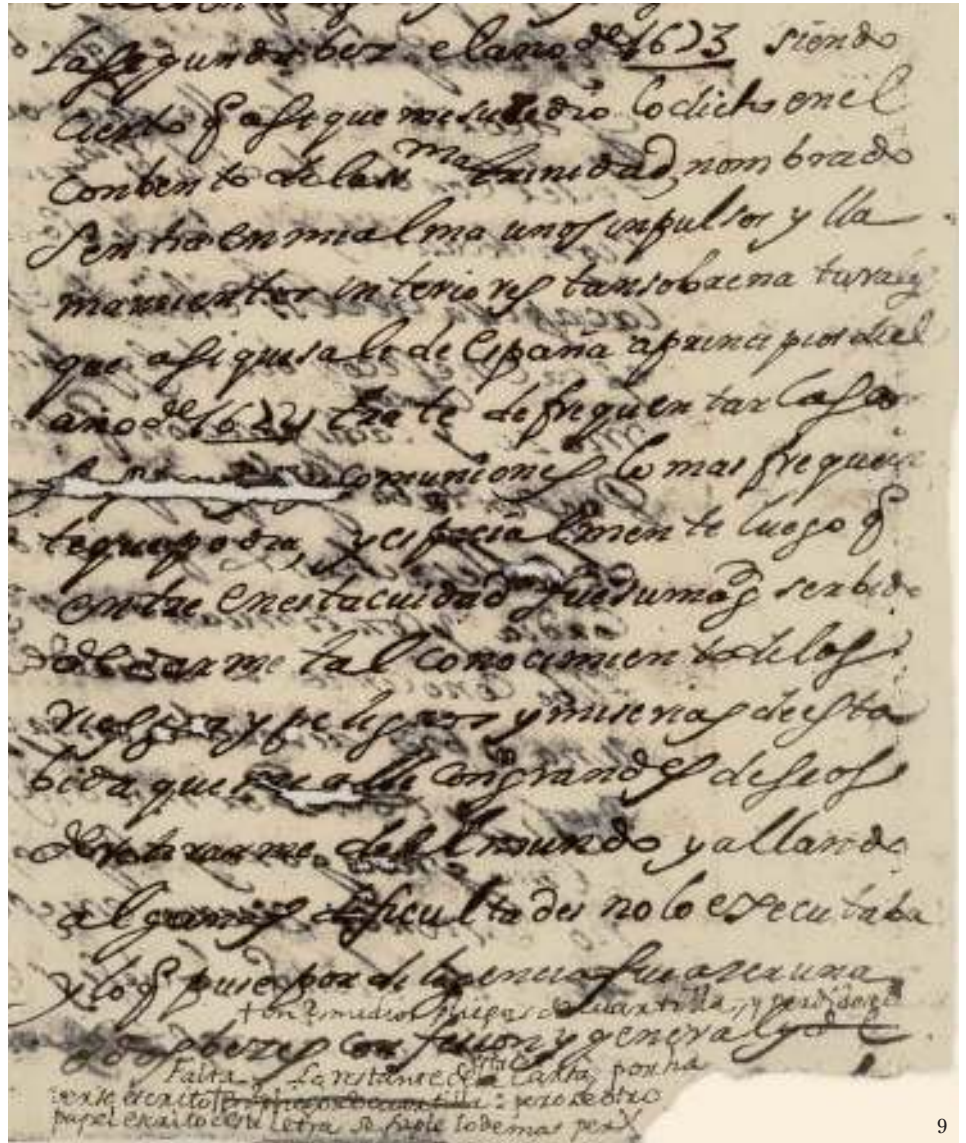 la segunda bez el año de 1623 siendo
cierto q asi que me susedio lo dicho en el
conbento de la ssma trinidad, nombrado
senti en mi alma unos inpulsos y lla
mamientos interiores tan sobrena turales
que asi que sali de España a principios del
año de 1624 trate de frequentar las
comuniones lo mas frequen
te que podia, y especialmente luego q
entre en esta ciudad fue su magd serbido
de darme tal conocimiento de los
riesgos y peligros y miserias de esta
bida que me alle con grandes deseos
de retirarme del mundo y allando
algunas dificultades no lo executaba
y lo q puse por diligencia fue aser una
medios pliegos de quartilla, y perdidose
bezes confesion y general
Falta lo restante de esta carta, por ha
verse escrito : pero de otro
papel escrito de su letra se suple lo demas
9